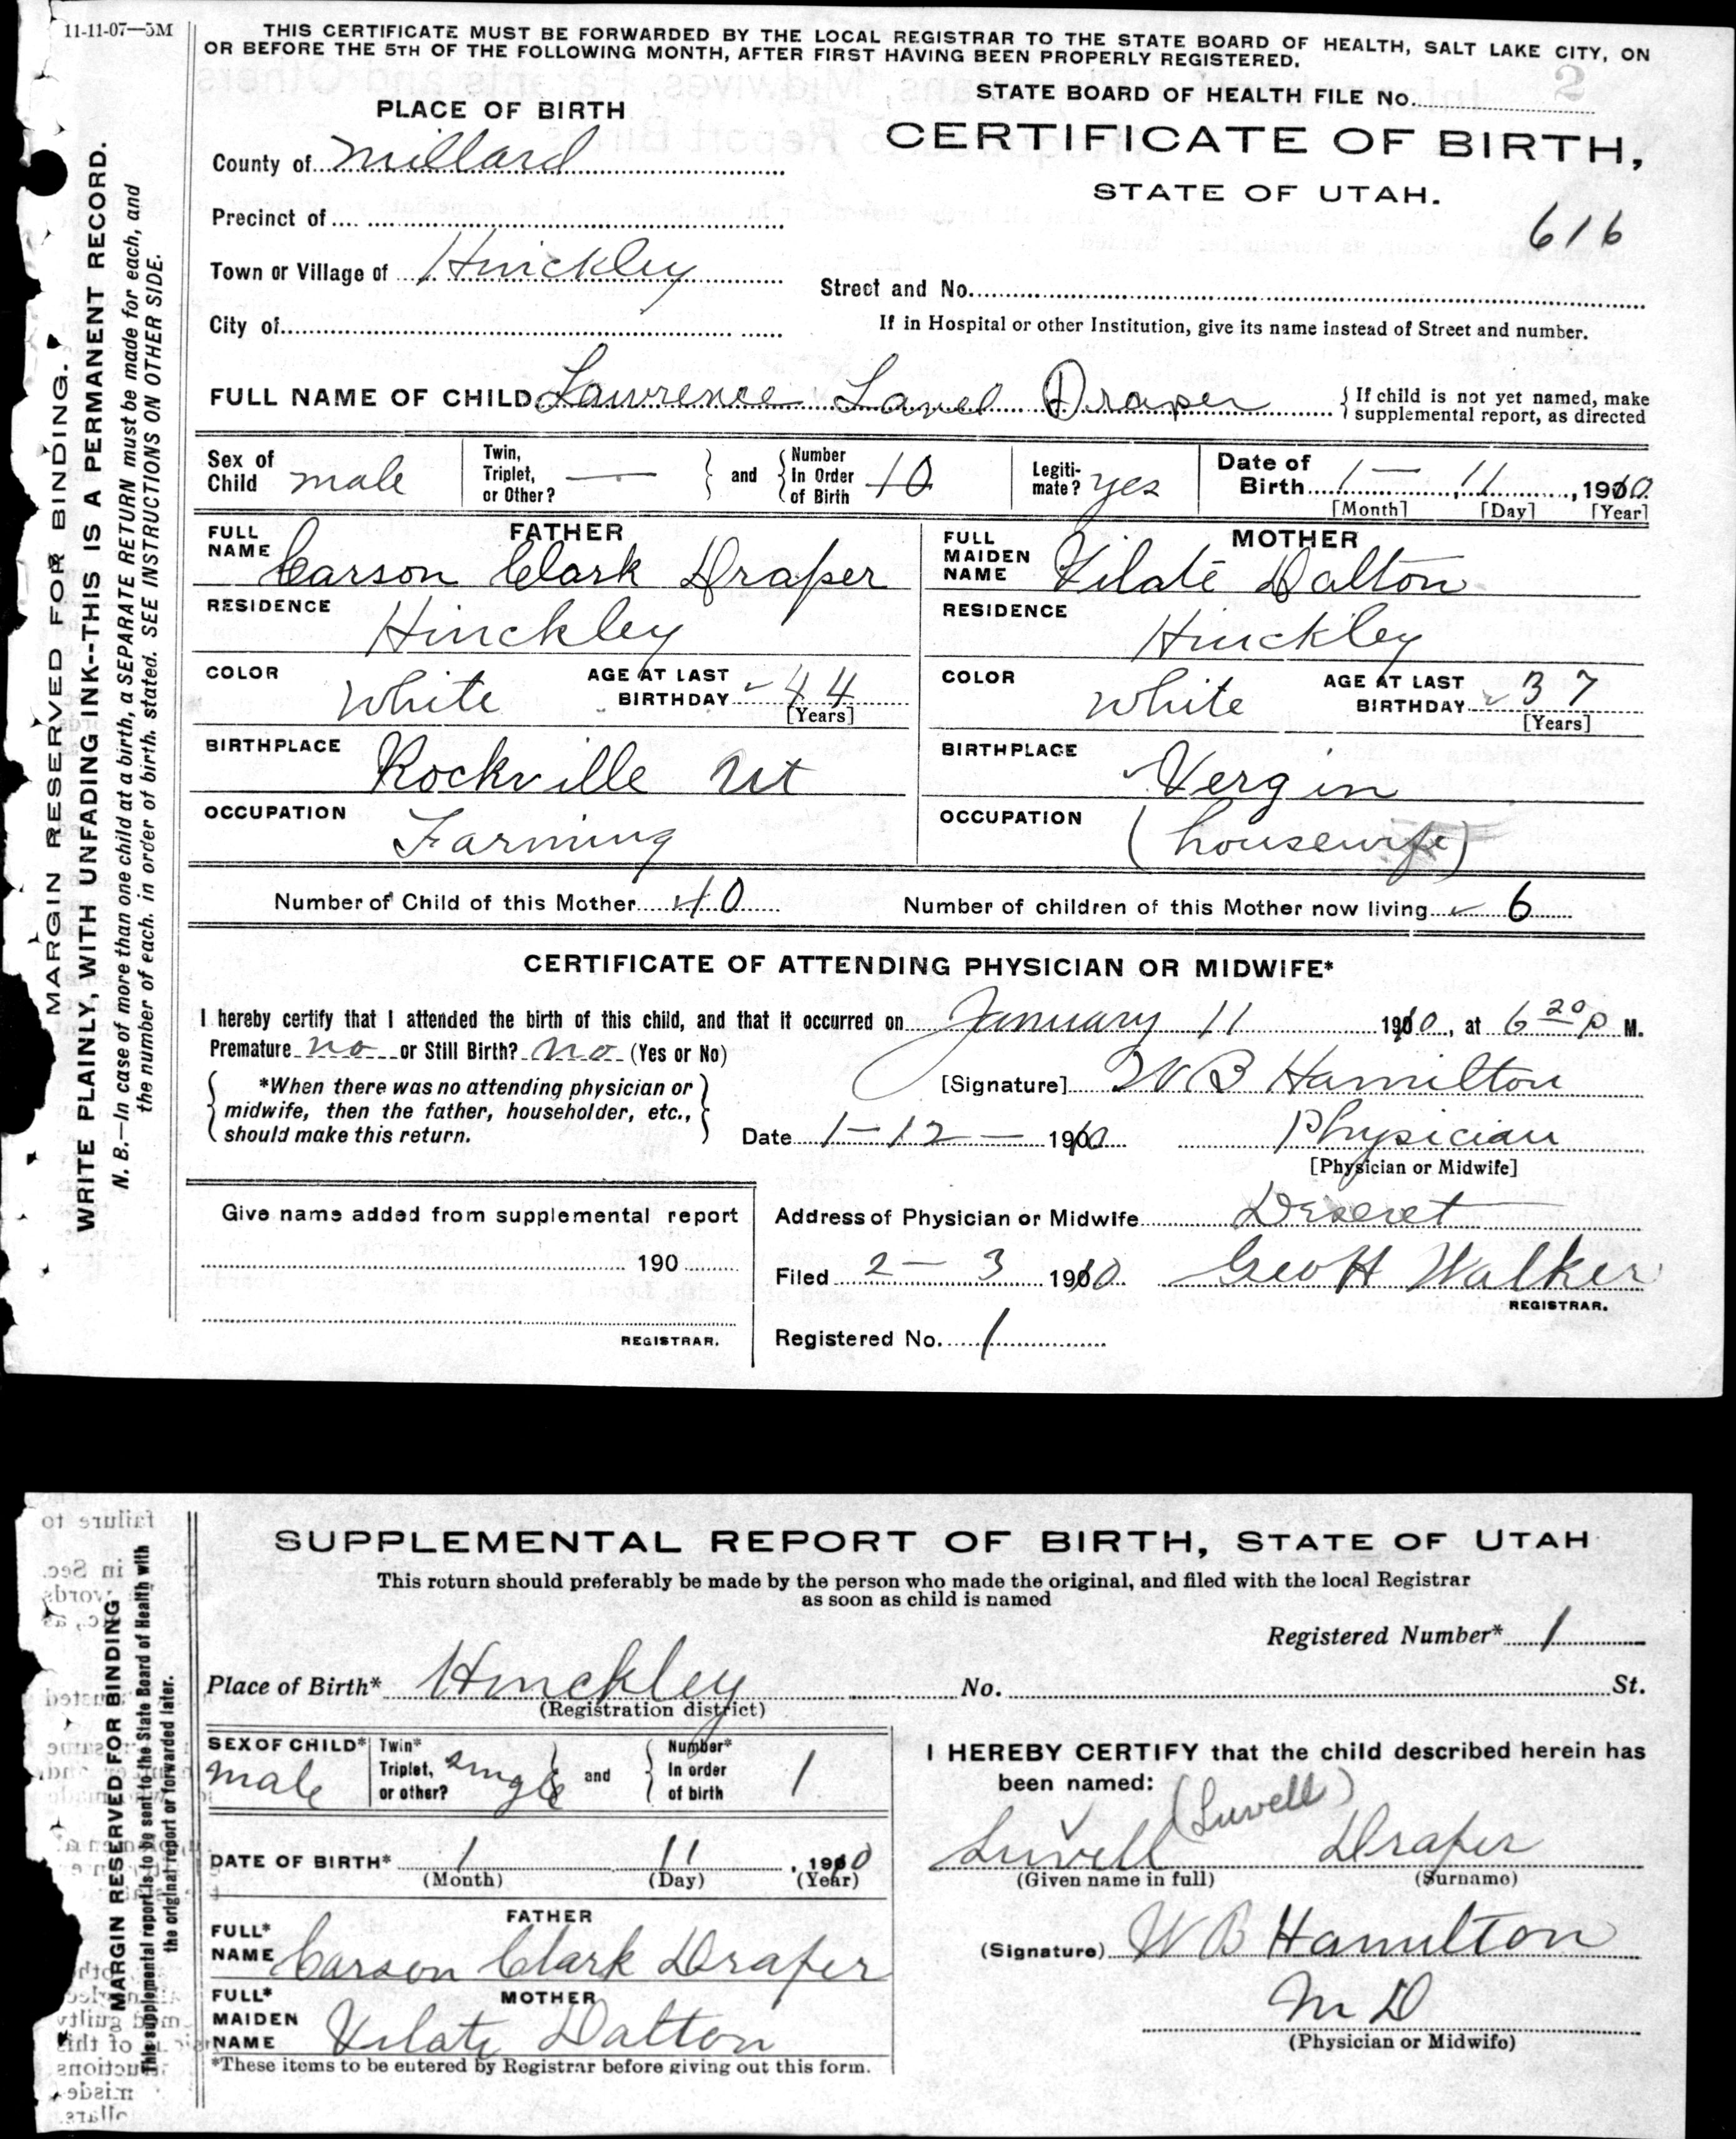 11-11-07—5M
THIS CERTIFICATE MUST BE FORWARDED BY THE LOCAL REGISTRAR TO THE STATE BOARD OF HEALTH, SALT LAKE CITY, ON
OR BEFORE THE 5TH OF THE FOLLOWING MONTH, AFTER FIRST HAVING BEEN PROPERLY REGISTERED.
STATE BOARD OF HEALTH FILE No. 2
PLACE OF BIRTH
CERTIFICATE OF BIRTH,
STATE OF UTAH.
616
County of Millard
Precinct of
Town or Village of Hinckley
Street and No.
City of
If in Hospital or other Institution, give its name instead of Street and number.
FULL NAME OF CHILD Lawrence Lavel Draper
{ If child is not yet named, make
supplemental report, as directed
Sex of Child male
Twin, Triplet, or Other? —
} and { Number In Order of Birth 10
Legitimate? yes
Date of Birth 1 — 11, 1910
[Month] [Day] [Year]
FATHER
FULL NAME Carson Clark Draper
RESIDENCE Hinckley
COLOR White
AGE AT LAST BIRTHDAY 44
[Years]
BIRTHPLACE Rockville Ut
OCCUPATION Farming
MOTHER
FULL MAIDEN NAME Vilate Dalton
RESIDENCE Hinckley
COLOR White
AGE AT LAST BIRTHDAY 37
[Years]
BIRTHPLACE Vergin
OCCUPATION (housewife)
Number of Child of this Mother 10
Number of children of this Mother now living 6
CERTIFICATE OF ATTENDING PHYSICIAN OR MIDWIFE*
I hereby certify that I attended the birth of this child, and that it occurred on January 11 1910, at 6 20 p M.
Premature no or Still Birth? no (Yes or No)
{ *When there was no attending physician or
midwife, then the father, householder, etc.,
should make this return. }
[Signature] W B Hamilton
Date 1-12- 1910
Physician
[Physician or Midwife]
Give name added from supplemental report
190
REGISTRAR.
Address of Physician or Midwife Deseret
Filed 2 — 3 1910 Geo H Walker
REGISTRAR.
Registered No. 1
MARGIN RESERVED FOR BINDING.
WRITE PLAINLY, WITH UNFADING INK--THIS IS A PERMANENT RECORD.
N. B.—In case of more than one child at a birth, a SEPARATE RETURN must be made for each, and
the number of each. in order of birth. stated. SEE INSTRUCTIONS ON OTHER SIDE.
SUPPLEMENTAL REPORT OF BIRTH, STATE OF UTAH
This return should preferably be made by the person who made the original, and filed with the local Registrar
as soon as child is named
Registered Number* 1
Place of Birth* Hinckley No. St.
(Registration district)
SEX OF CHILD* male
Twin* Triplet, or other? single
} and { Number* In order of birth 1
DATE OF BIRTH* 1 11, 1910
(Month) (Day) (Year)
FATHER
FULL* NAME Carson Clark Draper
MOTHER
FULL* MAIDEN NAME Vilate Dalton
*These items to be entered by Registrar before giving out this form.
I HEREBY CERTIFY that the child described herein has
been named:
(Luvell)
Luvell Draper
(Given name in full) (Surname)
(Signature) W B Hamilton
M D
(Physician or Midwife)
MARGIN RESERVED FOR BINDING
This supplemental report is to be sent to the State Board of Health with
the original report or forwarded later.